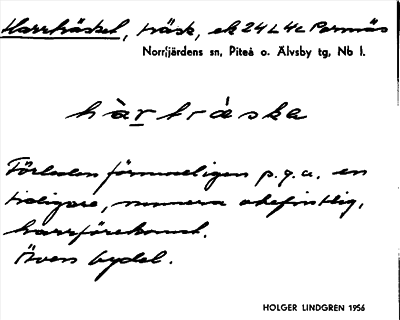 Harrträsket, träsk, ek 24 L4c Pormäs
Norrfjärdens sn, Piteå o. Älvsby tg, Nb l.
hàrtráska
Förleden förmodligen p.g.a. en
tidigare, numera obefintlig,
harrförekomst.
Även bydel.
HOLGER LINDGREN 1956